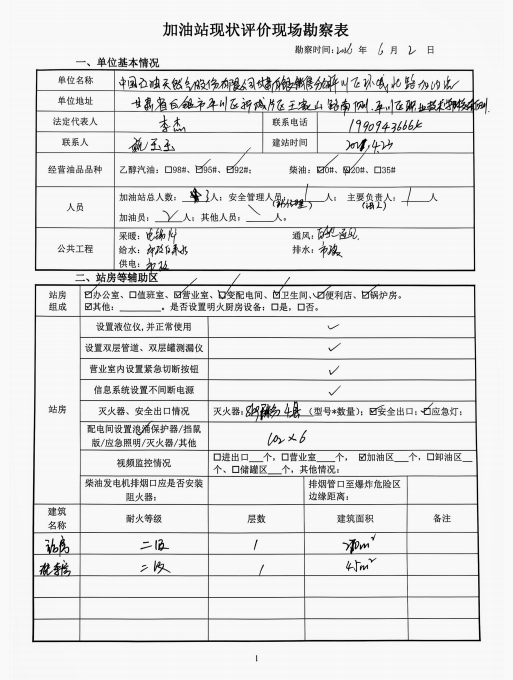 加油站现状评价现场勘察表
勘察时间:2026 年 6 月 2 日
一、单位基本情况
单位名称 中国石油天然气股份有限公司甘肃白银销售分公司平川区环城北路加油站
单位地址 甘肃省白银市平川区
法定代表人 李杰 联系电话
联系人 建站时间
经营油品品种 乙醇汽油:□98#、☑95#、☑92#; 柴油:☑0#、☑20#、□35#
人员 加油站总人数: 3 人;安全管理人员: 1 人; 主要负责人: 1 人
加油员: 2 人;其他人员: \ 人。
公共工程 采暖: 通风:自然通风
给水:市政自来水 排水:市政
供电:市政
二、站房等辅助区
站房组成 ☑办公室、□值班室、☑营业室、☑变配电间、☑卫生间、☑便利店、☑锅炉房。
☑其他: 。是否设置明火厨房设备:□是,□否。
站房
设置液位仪,并正常使用 ✓
设置双层管道、双层罐测漏仪 ✓
营业室内设置紧急切断按钮 ✓
信息系统设置不间断电源 ✓
灭火器、安全出口情况 灭火器: 4具 (型号*数量);☑安全出口;☑应急灯;
配电间设置浪涌保护器/挡鼠版/应急照明/灭火器/其他 CO2×6
视频监控情况 □进出口 个,□营业室 个,☑加油区 个,□卸油区 个、□储罐区 个,其他情况:
柴油发电机排烟口应是否安装阻火器: 排烟管口至爆炸危险区边缘距离:
建筑名称 耐火等级 层数 建筑面积 备注
站房 二级 1
二级 1 45m²
1